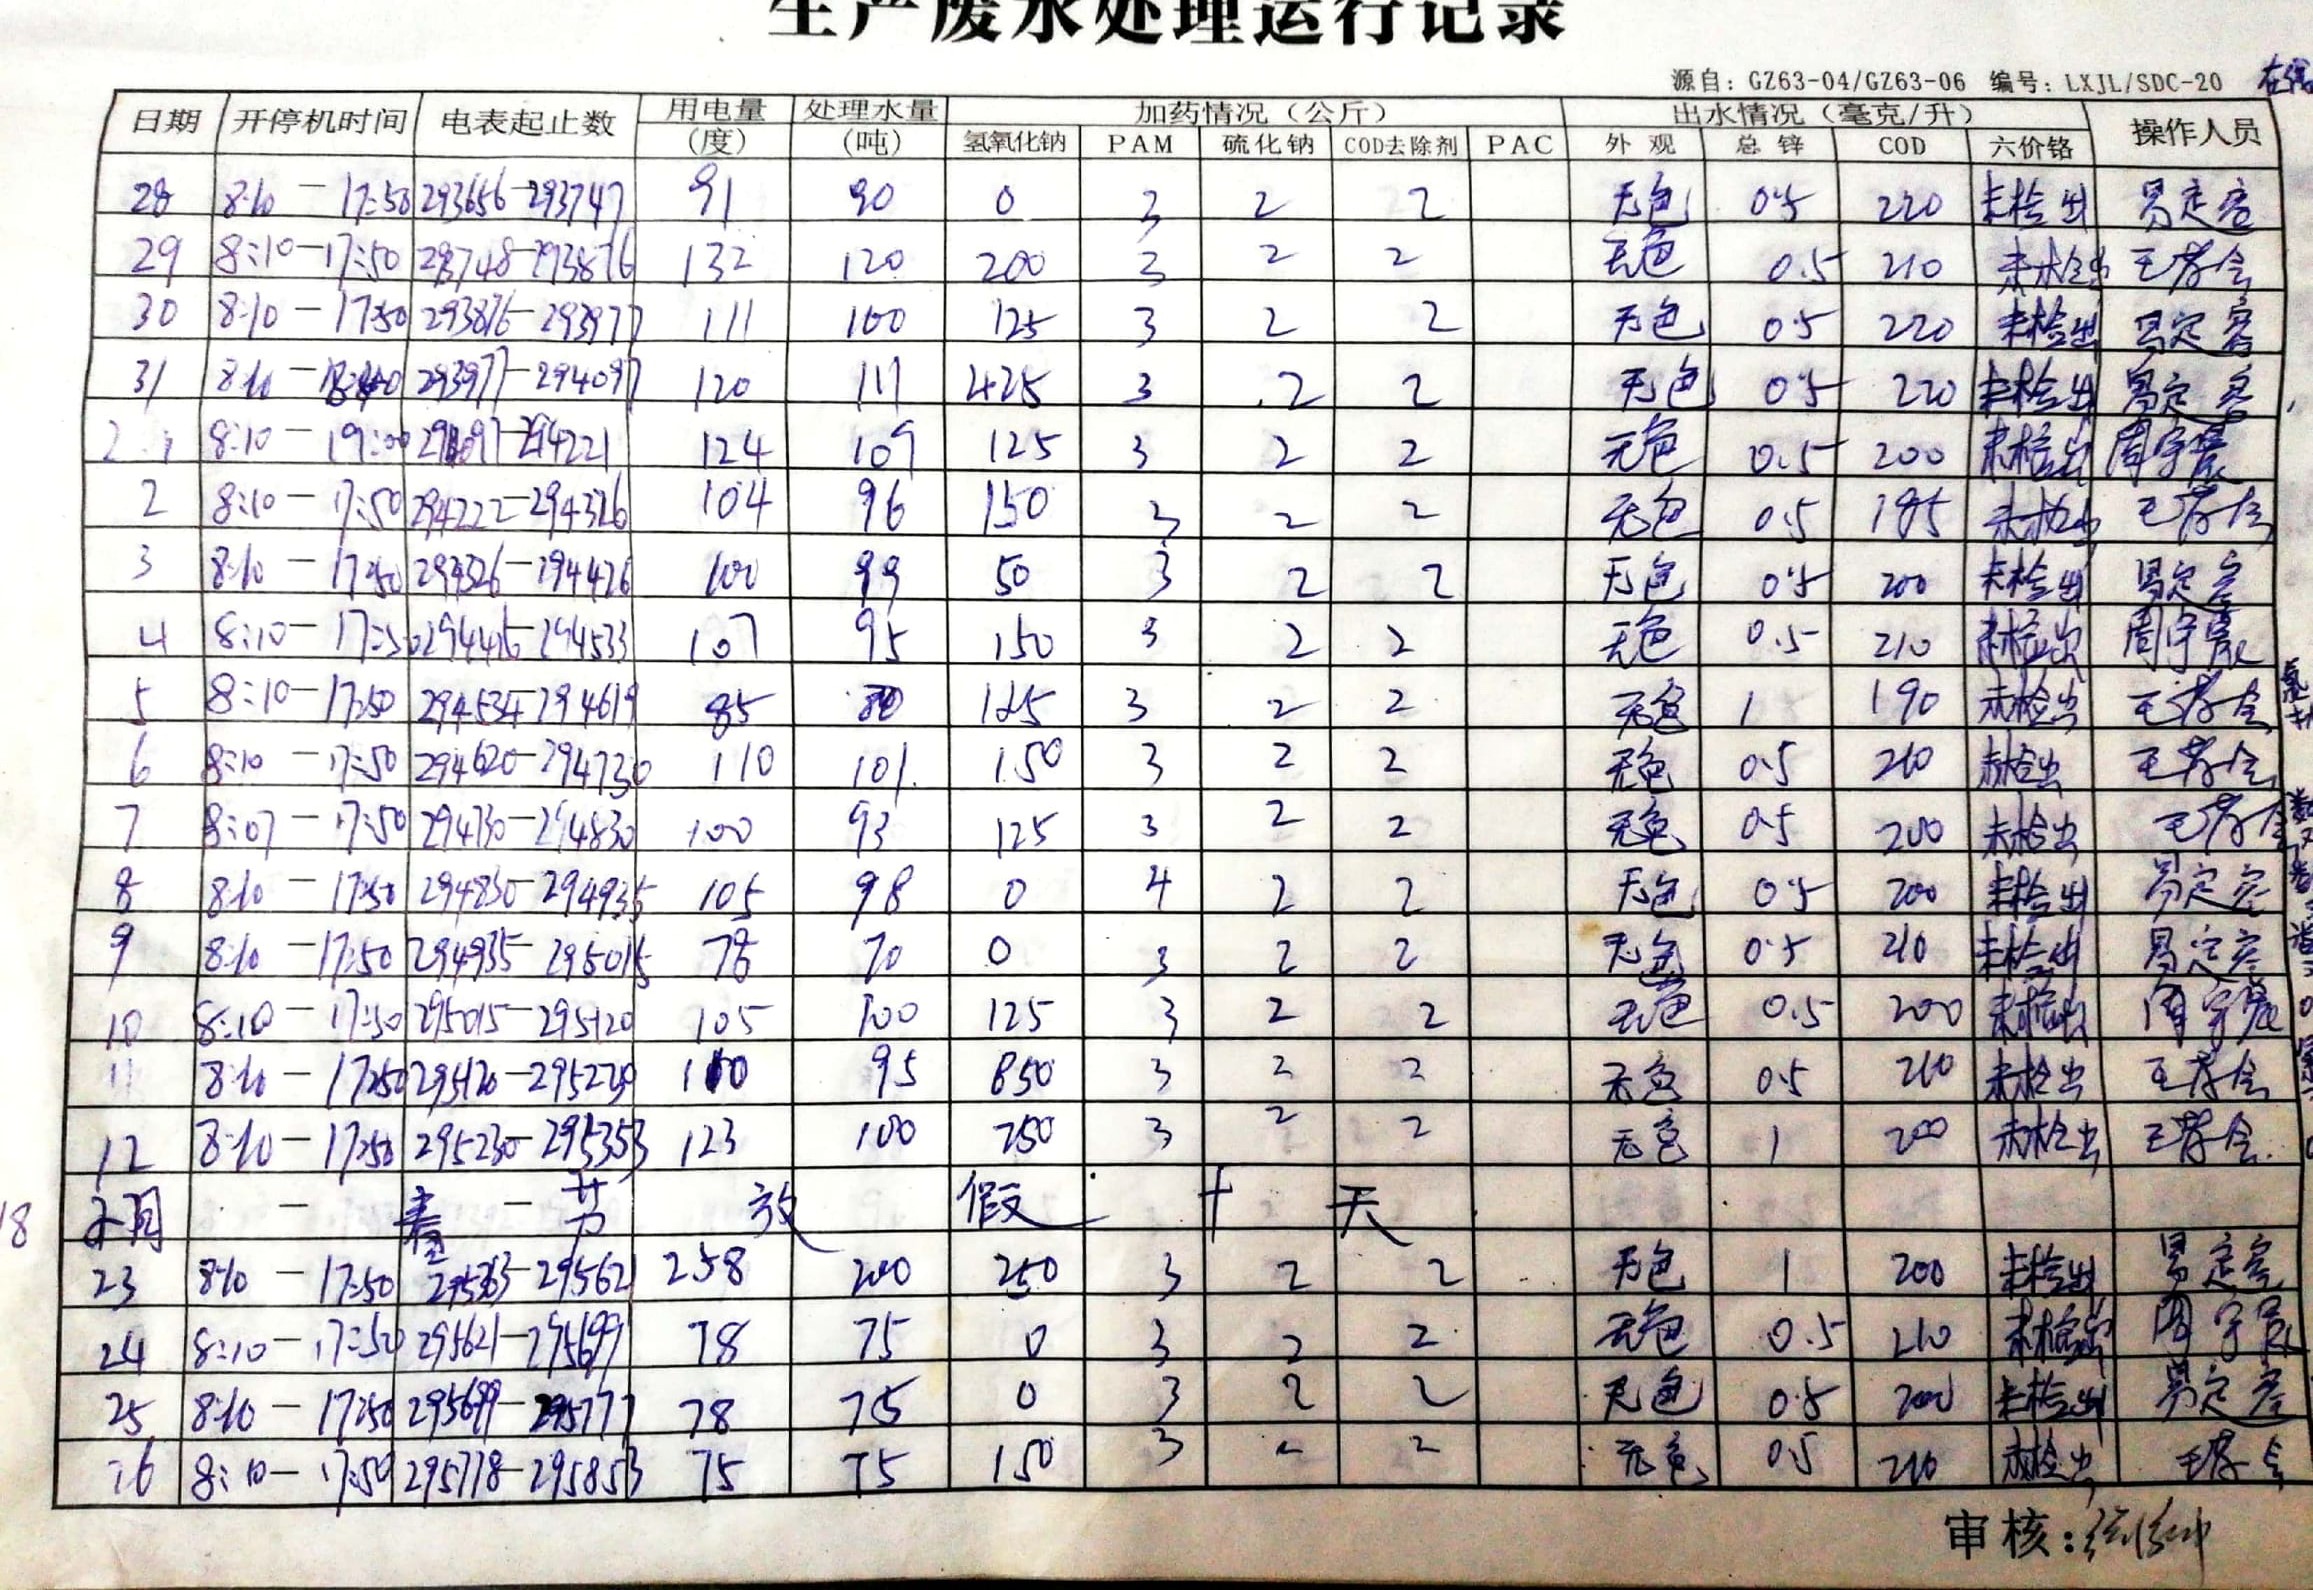 生产废水处理运行记录
源自：GZ63-04/GZ63-06 编号：LXJL/SDC-20
日期 开停机时间 电表起止数 用电量（度） 处理水量（吨） 加药情况（公斤） 出水情况（毫克/升） 操作人员
氢氧化钠 PAM 硫化钠 COD去除剂 PAC 外观 总锌 COD 六价铬
28 8:10-17:50 293656-293747 91 90 0 3 2 2 无色 0.5 220 未检出 易定容
29 8:10-17:50 293748-293876 132 120 200 3 2 2 无色 0.5 210 未检出 王孝会
30 8:10-17:50 293876-293977 111 100 125 3 2 2 无色 0.5 220 未检出 易定容
31 8:10- 293977-294097 120 117 425 3 2 2 无色 0.5 220 未检出 易定容
2.1 8:10-19:00 294097-294221 124 109 125 3 2 2 无色 0.5 200 未检出 周宇晨
2 8:10-17:50 294222-294326 104 96 150 3 2 2 无色 0.5 195 未检出 王孝会
3 8:10-17:50 294326-294426 100 99 50 3 2 2 无色 0.5 200 未检出 易定容
4 8:10-17:50 294426-294533 107 95 150 3 2 2 无色 0.5 210 未检出 周宇晨
5 8:10-17:50 294534-294619 85 125 3 2 2 无色 1 190 未检出 王孝会
6 8:10-17:50 294620-294730 110 101 150 3 2 2 无色 0.5 210 未检出 王孝会
7 8:07-17:50 294730-294830 100 93 125 3 2 2 无色 0.5 200 未检出 王孝会
8 8:10-17:50 294830-294935 105 98 0 4 2 2 无色 0.5 200 未检出 易定容
9 8:10-17:50 294935-295015 78 70 0 3 2 2 无色 0.5 210 未检出 易定容
10 8:10-17:50 295015-295120 105 100 125 3 2 2 无色 0.5 200 未检出 周宇晨
11 8:10-17:50 295120-295230 110 95 850 3 2 2 无色 0.5 210 未检出 王孝会
12 8:10-17:50 295230-295353 123 100 250 3 2 2 无色 1 200 未检出 王孝会
18 - 春 - 节 放 假 十 天
23 8:10-17:50 295363-295621 258 200 250 3 2 2 无色 1 200 未检出 易定容
24 8:10-17:50 295621-295699 78 75 0 3 2 2 无色 0.5 210 未检出 周宇晨
25 8:10-17:50 295699-295777 78 75 0 3 2 2 无色 0.5 200 未检出 易定容
26 8:10-17:50 295778-295853 75 75 150 3 2 2 无色 0.5 210 未检出 王孝会
审核：